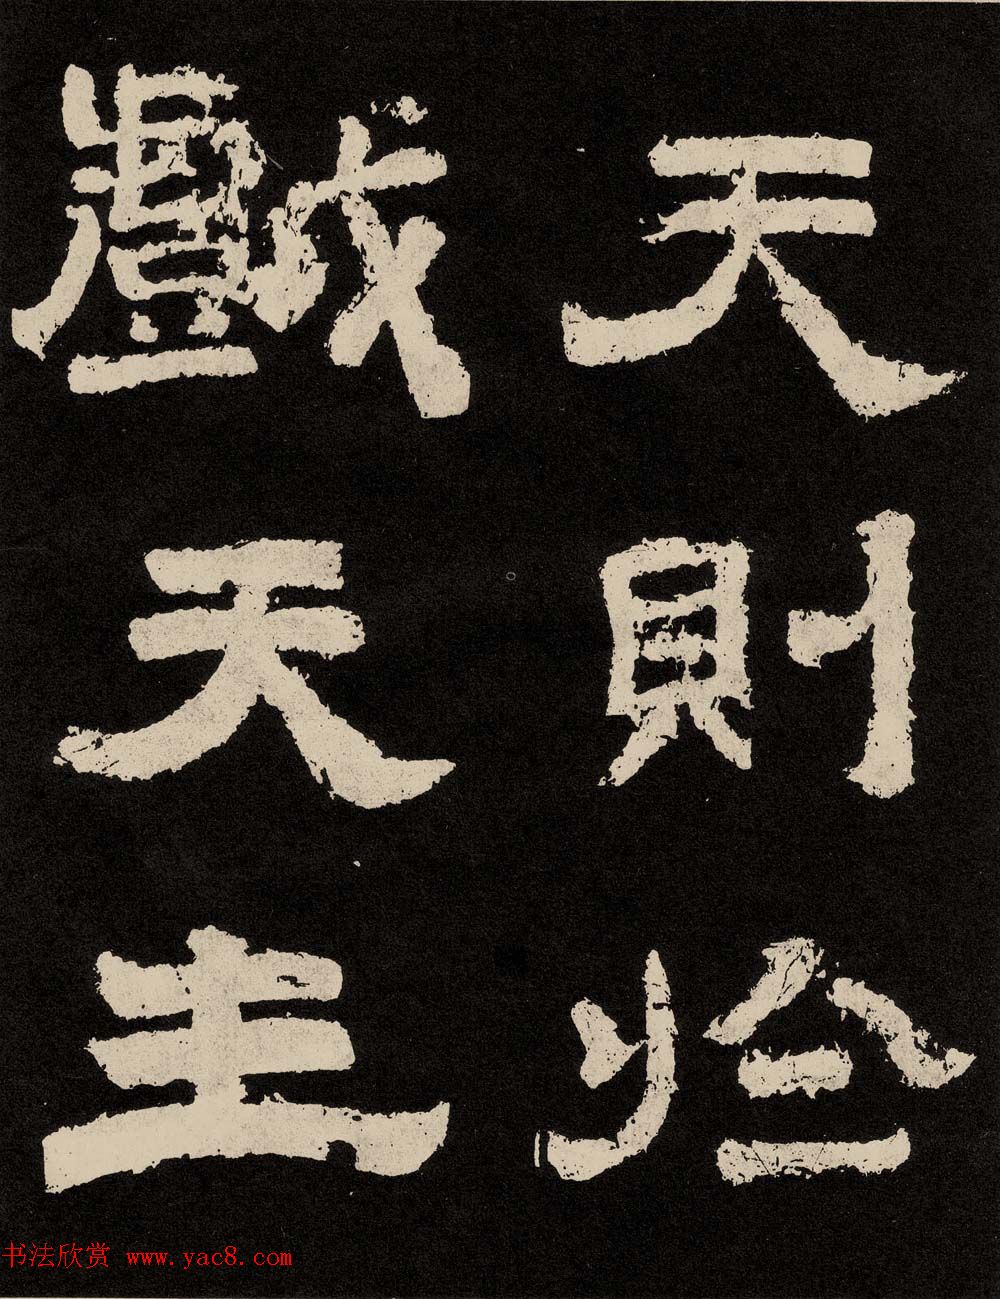 天則於
戲天生
书法欣赏 www.yac8.com